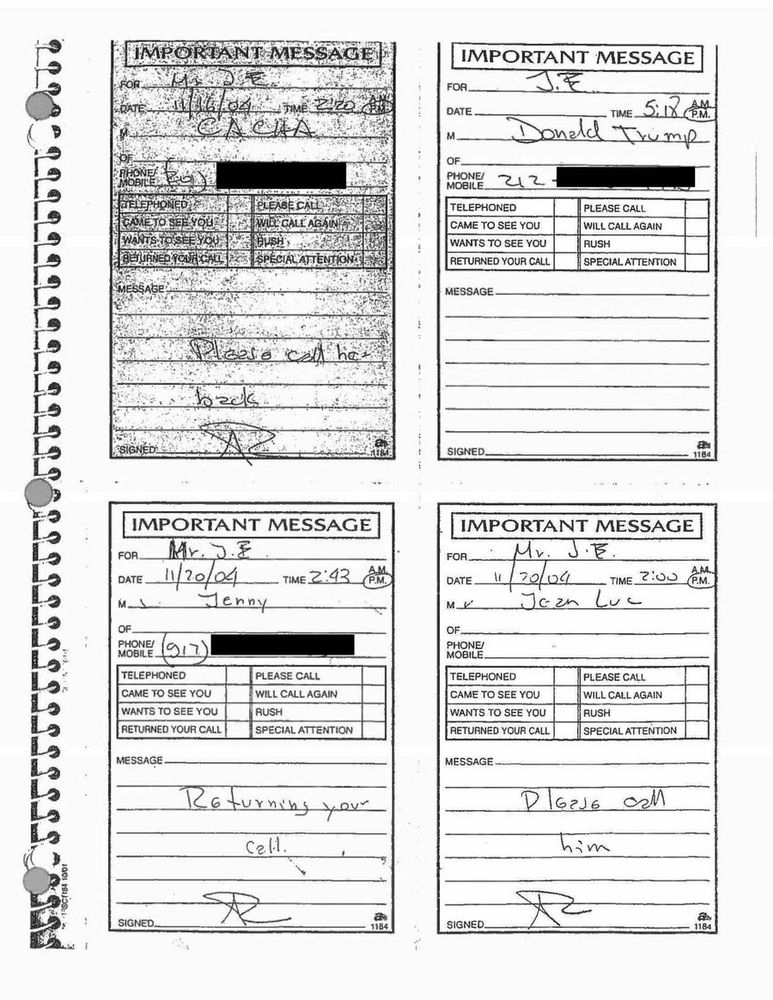 IMPORTANT MESSAGE
FOR Mr. J.E.
DATE 11/16/04 TIME 2:20 A.M. P.M.
M CACHA
OF
PHONE/
MOBILE
TELEPHONED PLEASE CALL
CAME TO SEE YOU WILL CALL AGAIN
WANTS TO SEE YOU RUSH
RETURNED YOUR CALL SPECIAL ATTENTION
MESSAGE
Please call her
back
SIGNED
1184
IMPORTANT MESSAGE
FOR J.E
DATE TIME 5:18 A.M. P.M.
M Donald Trump
OF
PHONE/
MOBILE 212-
TELEPHONED PLEASE CALL
CAME TO SEE YOU WILL CALL AGAIN
WANTS TO SEE YOU RUSH
RETURNED YOUR CALL SPECIAL ATTENTION
MESSAGE
SIGNED
1184
IMPORTANT MESSAGE
FOR Mr. J.E
DATE 11/20/04 TIME 2:43 A.M. P.M.
M Jenny
OF
PHONE/
MOBILE (917)
TELEPHONED PLEASE CALL
CAME TO SEE YOU WILL CALL AGAIN
WANTS TO SEE YOU RUSH
RETURNED YOUR CALL SPECIAL ATTENTION
MESSAGE
Returning your
call.
SIGNED
1184
IMPORTANT MESSAGE
FOR Mr. J.E.
DATE 11/20/04 TIME 2:00 A.M. P.M.
M Jean Luc
OF
PHONE/
MOBILE
TELEPHONED PLEASE CALL
CAME TO SEE YOU WILL CALL AGAIN
WANTS TO SEE YOU RUSH
RETURNED YOUR CALL SPECIAL ATTENTION
MESSAGE
Please call
him
SIGNED
1184